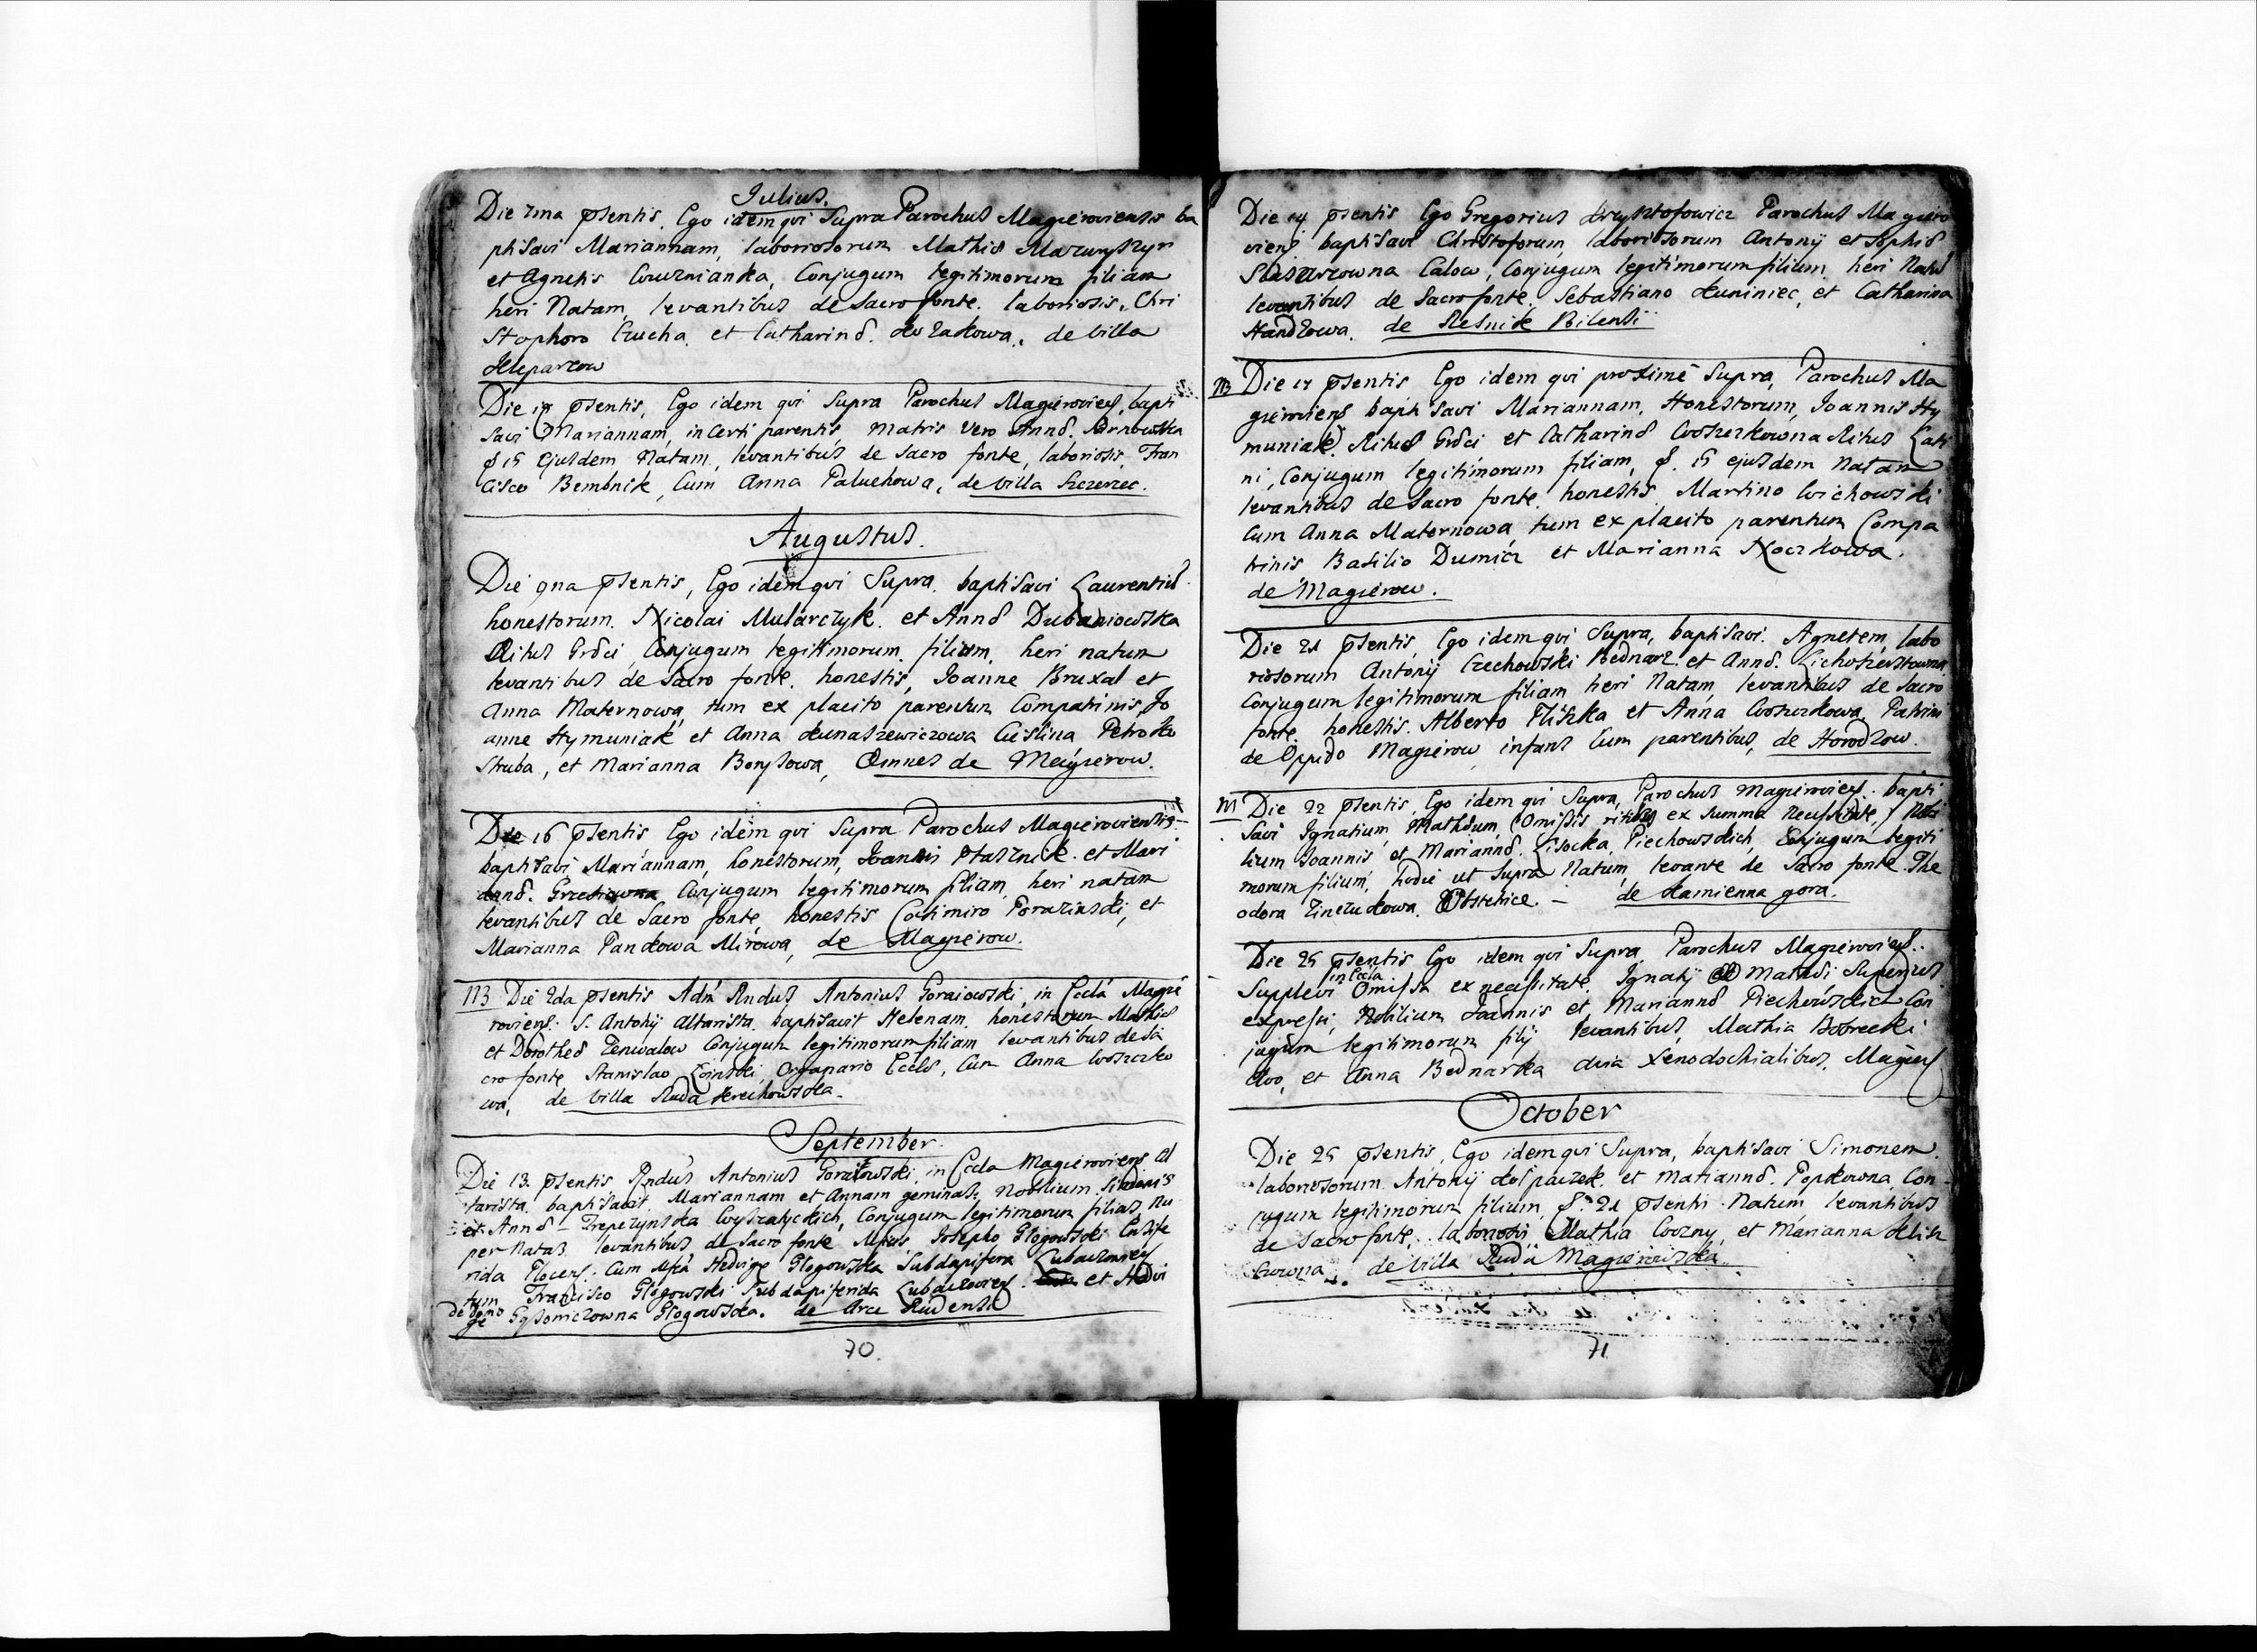 Julius.
Die 7ma psentis. Ego idem qui Supra Parochus Magieroviensis ba
ptisavi Mariannam, laboriosorum Mathiæ
et Agnetis Conjugum legitimorum filiam
heri Natam, levantibus de Sacro fonte. laboriosis, Chri
stophoro et Catharina. de villa
Die psentis, Ego idem qui Supra Parochus Magieroviens, bapti
savi Mariannam, incerti parentis, Matris vero Annæ.
15 Ejusdem Natam, levantibus de Sacro fonte, laboriosis, Fran
cisco Bembnik, Cum Anna Paluchowa, de villa Szczerzec.
Augustus.
Die 9na psentis, Ego idem qui Supra. baptisavi Laurentium
honestorum. Nicolai Mularczyk. et Annæ Dubaniowska
Ritus Græci, Conjugum legitimorum. filium. heri natum
levantibus de Sacro fonte. honestis, Joanne Bruxal et
Anna Maternowa, tum ex placito parentum Compatrinis, Jo
anne Hymuniak et Anna
Struba, et Marianna Omnes de Magierow.
Die 16 psentis Ego idem qui Supra Parochus Magieroviensis
baptisavi Mariannam, honestorum, Joannis Ptasznik. et Mari
annæ. Conjugum legitimorum filiam, heri natam
levantibus de Sacro fonte, honestis Casimiro Poraziński, et
Marianna Pankowa Mirowa, de Magierow.
NB Die 2da psentis Adm Rndus Antonius Goraiowski, in Eccla Magie
roviens. S. Antonij Altarista. baptisavit Helenam. honestorum Mathiæ
et Dorotheæ Conjugum legitimorum filiam levantibus de Sa
cro fonte Stanislao Organario Eccle, Cum Anna Woszczko
wa, de villa Ruda
September.
Die 13. psentis Rndus Antonius Goraiowski, in Eccla Magierowiens Al
tarista, baptisavit Mariannam et Annam geminas, Nobilium
et Annæ Conjugum legitimorum filias nu
per Natas levantibus de Sacro fonte Josepho Głogowski Ensife
rida Cum Hedvige Głogowska Subdapifera
tum Francisco Głogowski Subdapiferida et Hedvi
de domo
ge Głogowska. de Arce Rudensi
70.
Die 14 psentis Ego Gregorius Krzysztofowicz Parochus Magiero
viens baptisavi Christoforum, laboriosorum Antonij et Sophiæ
Conjugum legitimorum filium heri Natum
levantibus de Sacro fonte. Sebastiano Kuniniec, et Catharina
de
NB Die 17 psentis, Ego idem qui proxime Supra, Parochus Ma
gierowiens baptisavi Mariannam, Honestorum, Joannis Hy
muniak Ritus Græci et Catharinæ Woszczkowna Ritus Lati
ni, Conjugum legitimorum filiam, 15 ejusdem Natam
levantibus de Sacro fonte. honestis Martino Wichowski
Cum Anna Maternowa, tum ex placito parentum Compa
trinis Basilio Dumicz et Marianna Noczkowa.
de Magierow.
Die 21 psentis, Ego idem qui Supra, baptisavi. Agnetem, labo
riosorum Antonij Czechowski Bednarz. et Annæ.
Conjugum legitimorum filiam heri Natam, levantibus de Sacro
fonte. honestis. Alberto Fliszka et Anna Woszczkowa, Patrini
de Oppido Magierow, infans Cum parentibus, de Horodzow.
NB Die 22 psentis, Ego idem qui Supra, Parochus Magieroviens. bapti
savi Ignatium Mathæum, (Omissis ritibus ex Summa Necessitate,) Nobi
lium Joannis et Mariannæ. Piechowskich, Conjugum legiti
morum filium, hodie ut Supra Natum, levante de Sacro fonte The
odora Obstetrice. — de Kamienna gora.
Die 25 psentis Ego idem qui Supra. Parochus Magierowiens.
in Eccla
Supplevi Omissa ex necessitate. Ignatij Mathæi Superius
expressi, Nobilium Joannis et Mariannæ Piechowskich Con
jugum legitimorum filij levantibus, Mathia Bobrecki
et Anna Bednarka Xenodochialibus, Magiers
October
Die 25 psentis, Ego idem qui Supra, baptisavi Simonem.
laboriosorum. Antonij et Mariannæ. Popkowna Con
jugum legitimorum filium, 21 psentis Natum levantibus
de Sacro fonte, laboriosis Mathia Wozny, et Marianna
de villa Ruda Magierowska.
71